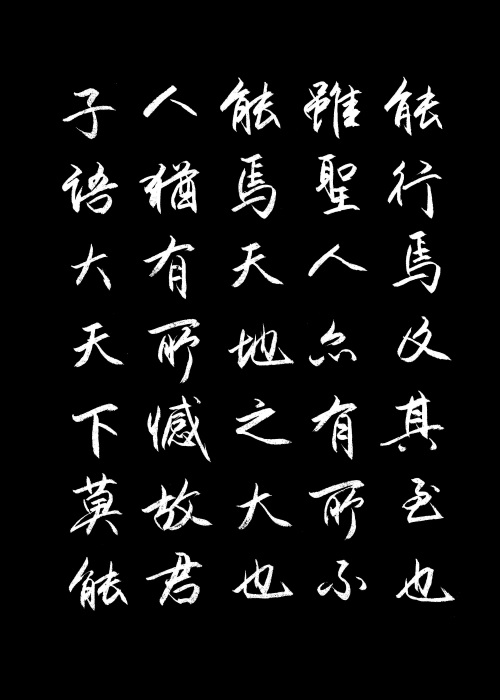 能行焉及其至也
雖聖人亦有所不
能焉天地之大也
人猶有所憾故君
子語大天下莫能